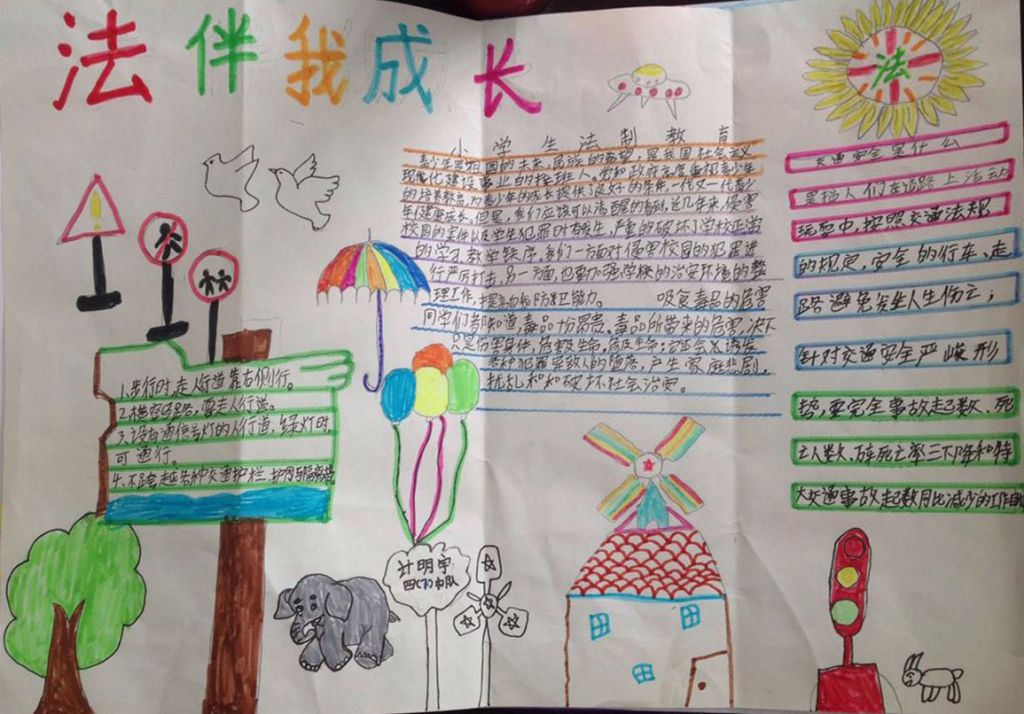 法伴我成长
法
小学生法制教育
青少年是祖国的未来,民族的希望,是我国社会主义
现代化建设事业的接班人。党和政府高度重视青少年
的培养教育,为青少年的成长提供了良好的条件,一代又一代青少
年健康成长。但是,我们应该可以清醒的看到,近几年来,侵害
校园的案件以及学生犯罪时有发生,严重的破坏了学校正常
的学习教学秩序,我们一方面对侵害校园的犯罪进
行严厉打击,另一方面,也要加强学校的治安环境的整
理工作,提高自我防卫能力。 吸食毒品的危害
同学们都知道,毒品昂贵,毒品所带来的危害,决不
只是伤害身体,危害生命,危及生命;它还会诱发
各种犯罪导致人的堕落,产生家庭悲剧,
扰乱和和破坏社会治安。
交通安全是什么
是指人们在道路上活动
玩耍中,按照交通法规
的规定,安全的行车、走
路避免发生人生伤亡;
针对交通安全严峻形
势,要完全事故起数、死
亡人数、万车死亡率三下降和特
大交通事故起数同比减少的工作目
1.步行时,走人行道靠右侧行。
2.横穿马路,要走人行道。
3.设有通信号灯的人行道,绿灯时,
可通行。
4.不跨越各种交通护栏、护网与隔离墩
计明宇
四(7)中队